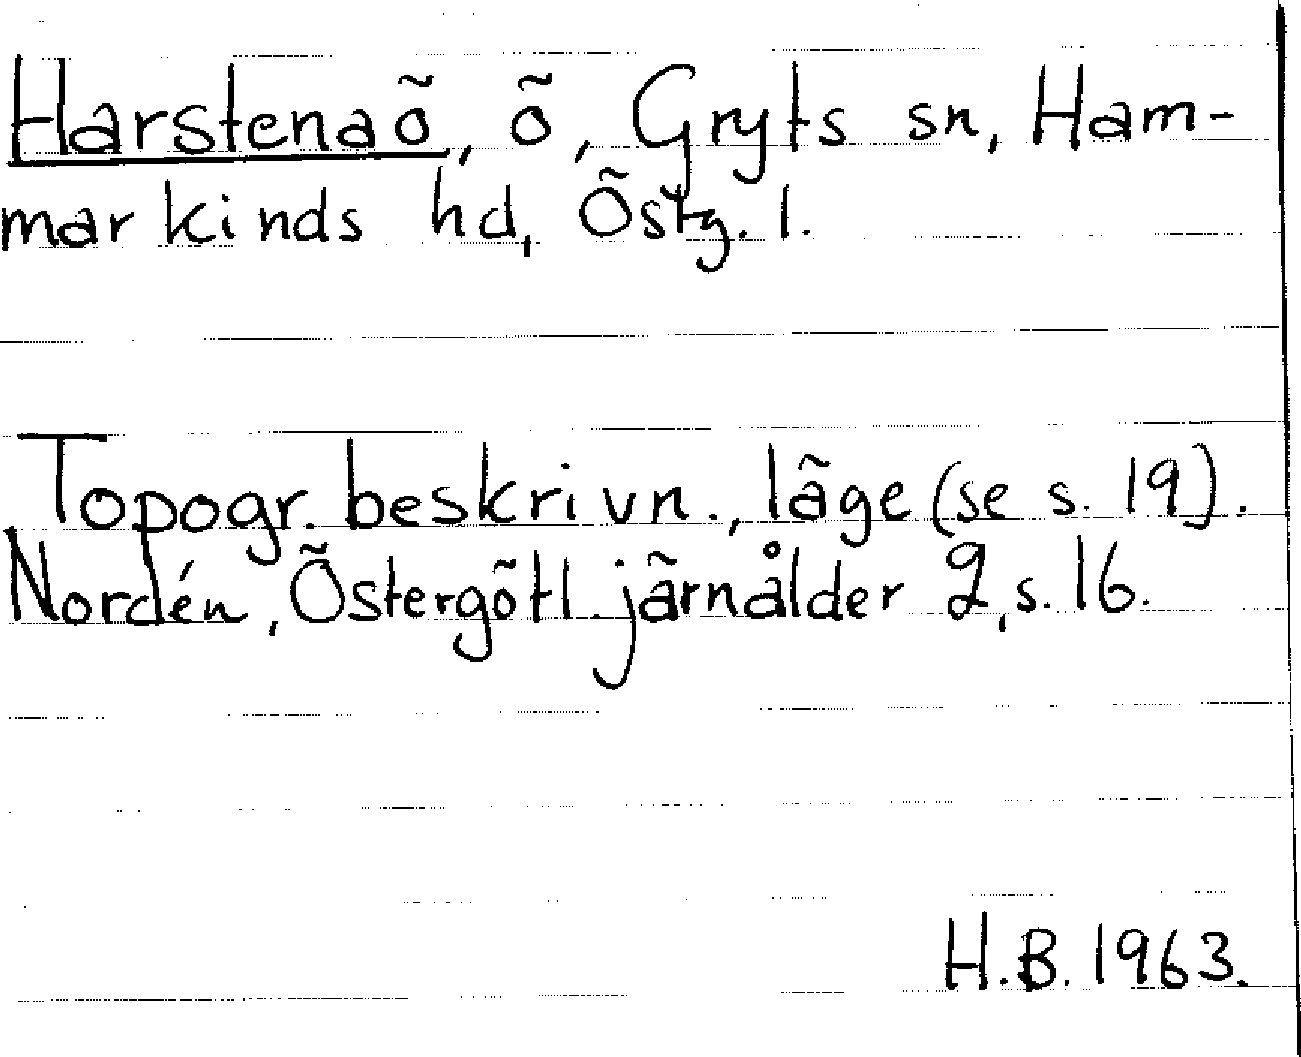 Harstenaö, ö, Gryts sn, Ham-
markinds hd, Östg. l.
Topogr. beskrivn., läge (se s. 19).
Nordén, Östergötl. järnålder 2, s. 16.
H.B. 1963.